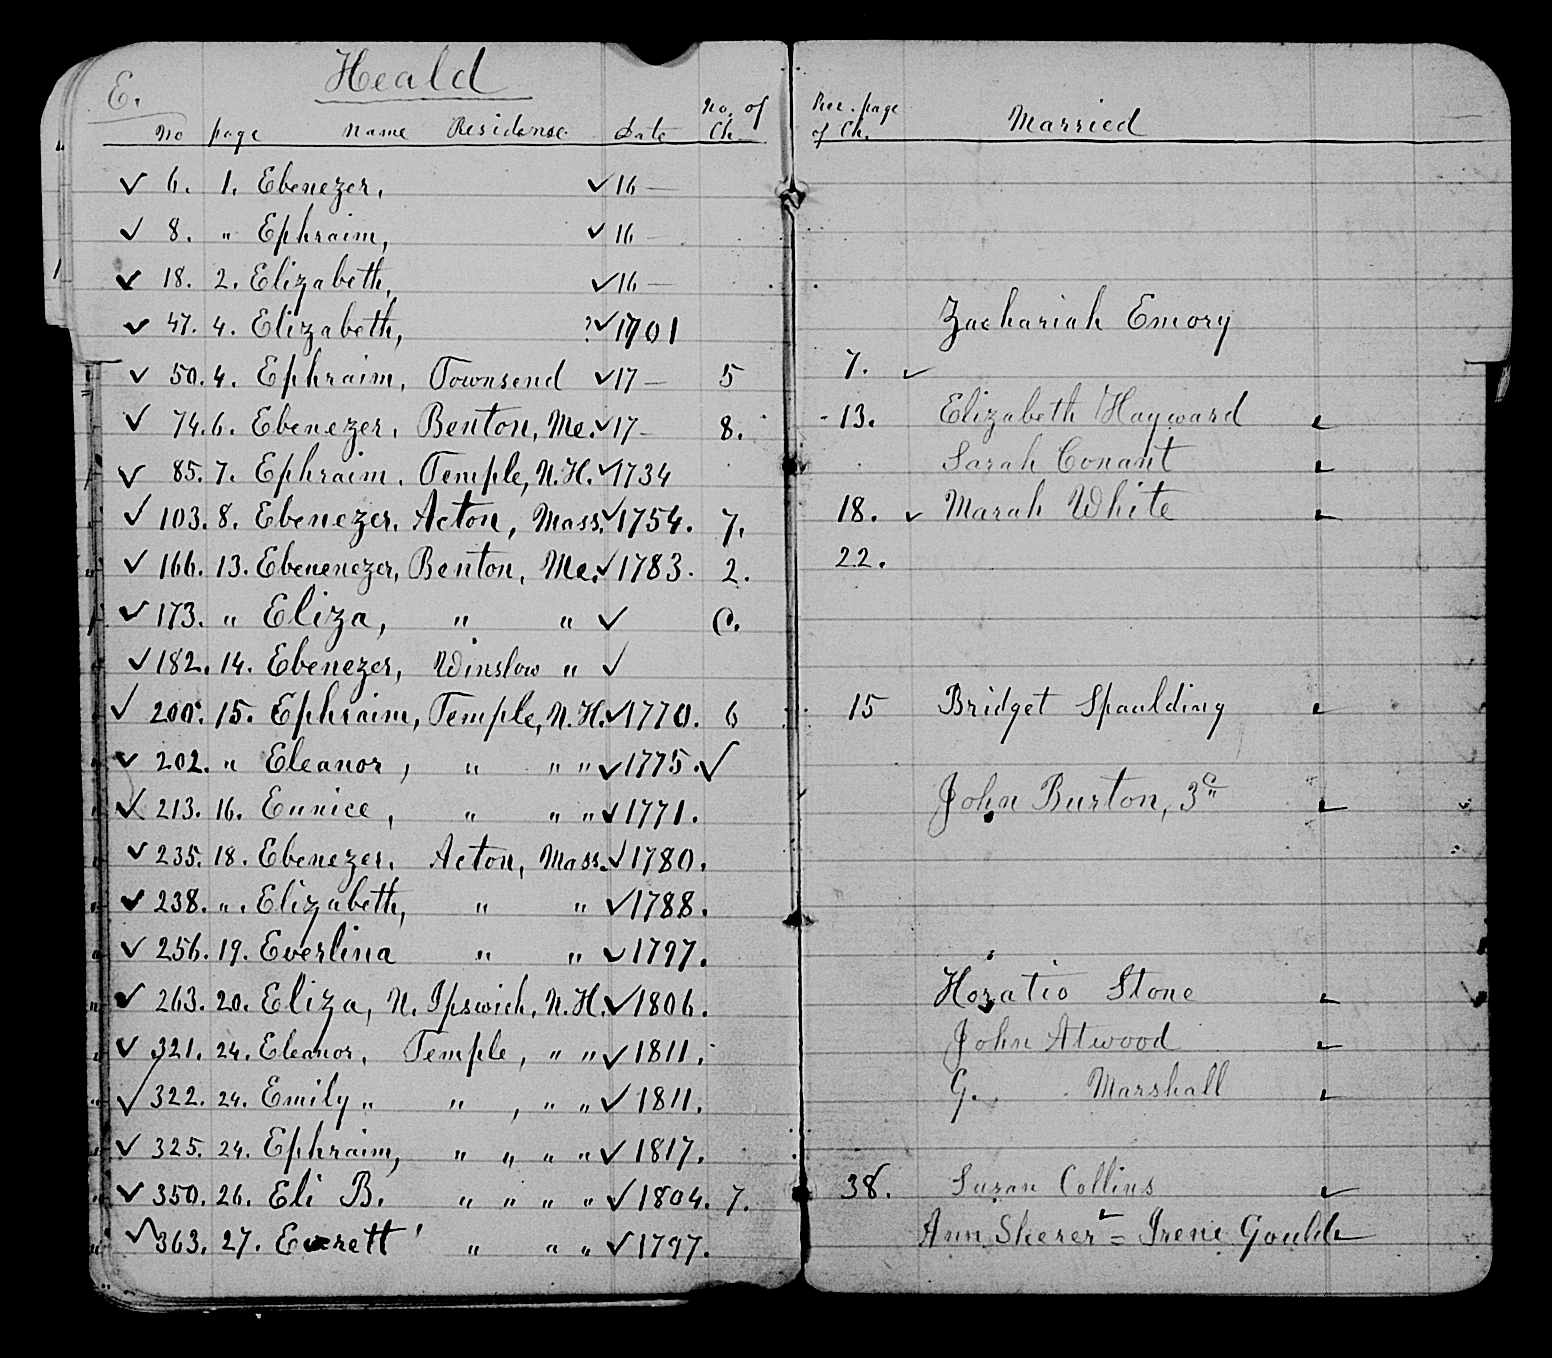 E. Heald
No page Name Residence Date No. of Ch. Rec. page of Ch. Married
✓ 6. 1. Ebenezer, ✓ 16 —
✓ 8. " Ephraim, ✓ 16 —
✓ 18. 2. Elizabeth, ✓ 16 —
✓ 47. 4. Elizabeth, ?✓ 1701 Zachariah Emory
✓ 50. 4. Ephraim, Townsend ✓ 17 — 5 7. ✓
✓ 74. 6. Ebenezer, Benton, Me. ✓ 17 - 8. 13. Elizabeth Hayward ✓
✓ 85. 7. Ephraim, Temple, N.H. ✓ 1734 Sarah Conant ✓
✓ 103. 8. Ebenezer. Acton, Mass. ✓ 1754. 7. 18. ✓ Marah White ✓
✓ 166. 13. Ebenenezer, Benton, Me. ✓ 1783. 2. 22.
✓ 173. " Eliza, " " ✓ C.
✓ 182. 14. Ebenezer, Winslow " ✓
✓ 200. 15. Ephraim, Temple, N.H. ✓ 1770. 6 15 Bridget Spaulding ✓
✓ 202. " Eleanor, " " " ✓ 1775. ✓
✓ 213. 16. Eunice, " " " ✓ 1771. John Burton, 3d ✓
✓ 235. 18. Ebenezer. Acton, Mass. ✓ 1780.
✓ 238. ". Elizabeth, " " ✓ 1788.
✓ 256. 19. Everlina " " ✓ 1797.
✓ 263. 20. Eliza, N. Ipswich, N.H. ✓ 1806. Horatio Stone ✓
✓ 321. 24. Eleanor, Temple, " " ✓ 1811. John Atwood ✓
✓ 322. 24. Emily " " , " " ✓ 1811. G. Marshall ✓
✓ 325. 24. Ephraim, " " " " ✓ 1817.
✓ 350. 26. Eli B. " " " " ✓ 1804. 7. 38. Susan Collins ✓
✓ 363. 27. Everett " " " ✓ 1797. Ann Skerer = Irene Gould ✓